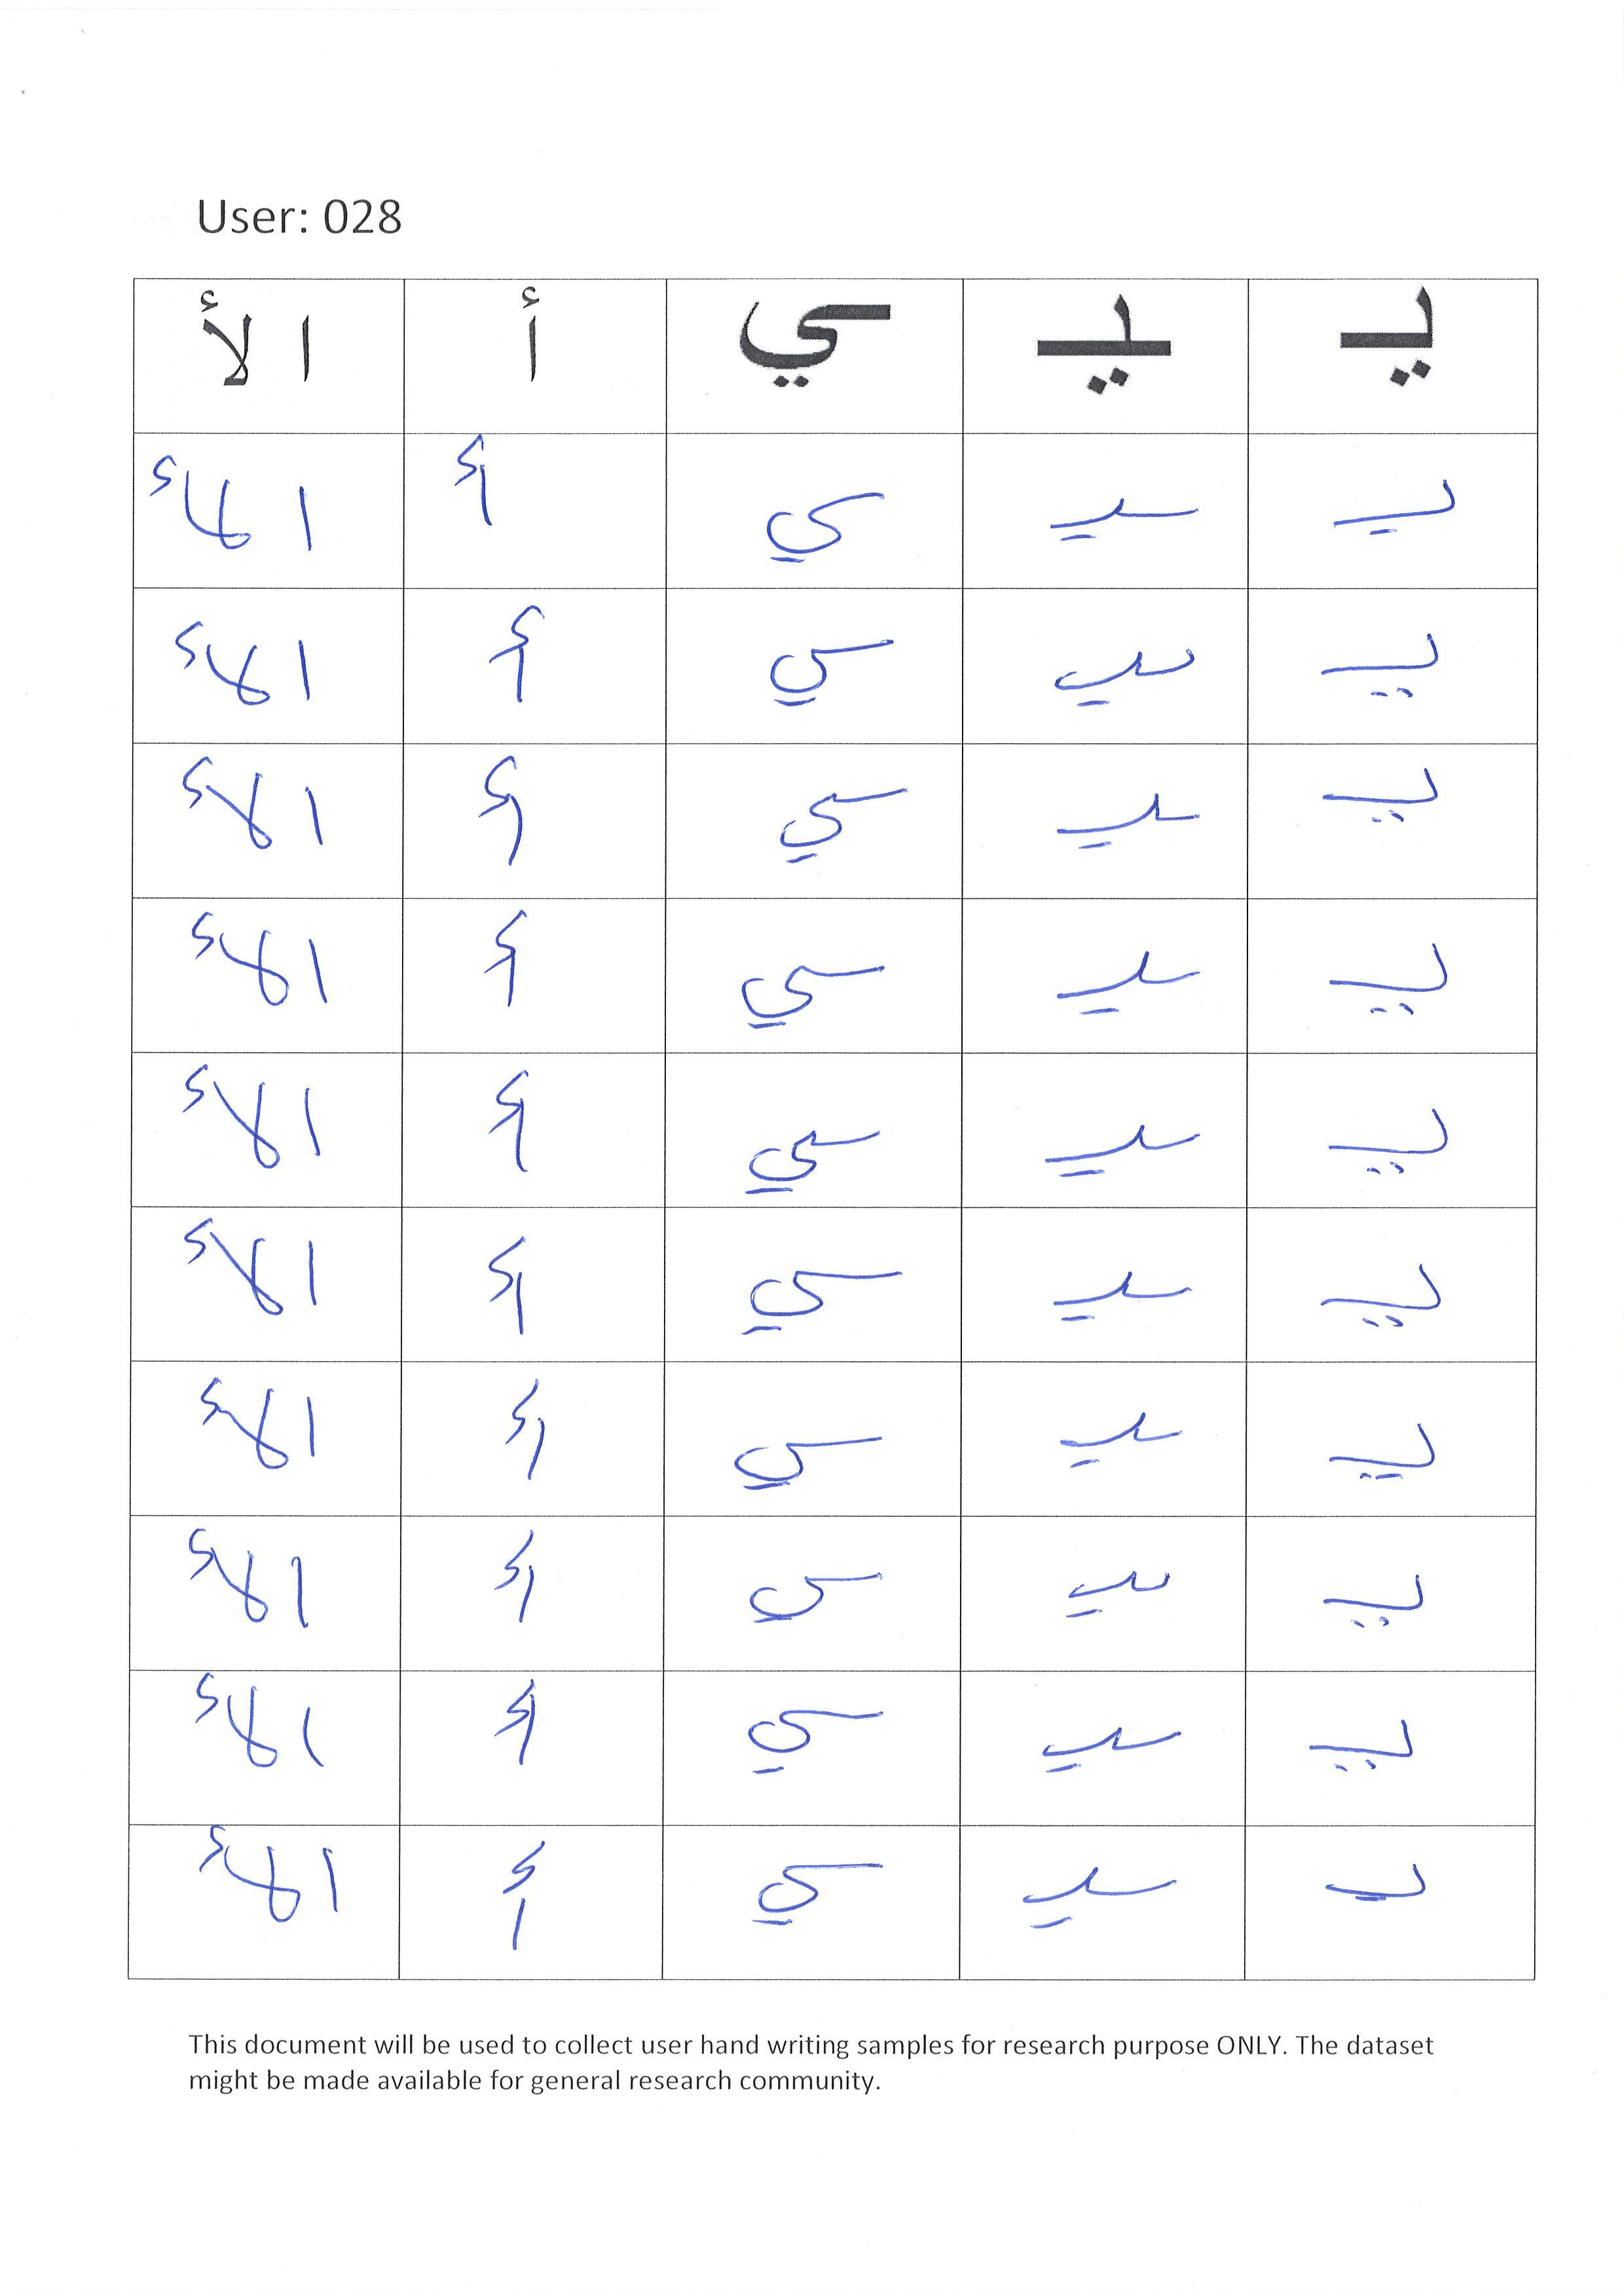 User: 028
يـ ـيـ ـي أ ا لأ
يـ ـيـ ـي أ ا لأ
يـ ـيـ ـي أ ا لأ
يـ ـيـ ـي أ ا لأ
يـ ـيـ ـي أ ا لأ
يـ ـيـ ـي أ ا لأ
يـ ـيـ ـي أ ا لأ
يـ ـيـ ـي أ ا لأ
يـ ـيـ ـي أ ا لأ
يـ ـيـ ـي أ ا لأ
يـ ـيـ ـي أ ا لأ
This document will be used to collect user hand writing samples for research purpose ONLY. The dataset
might be made available for general research community.